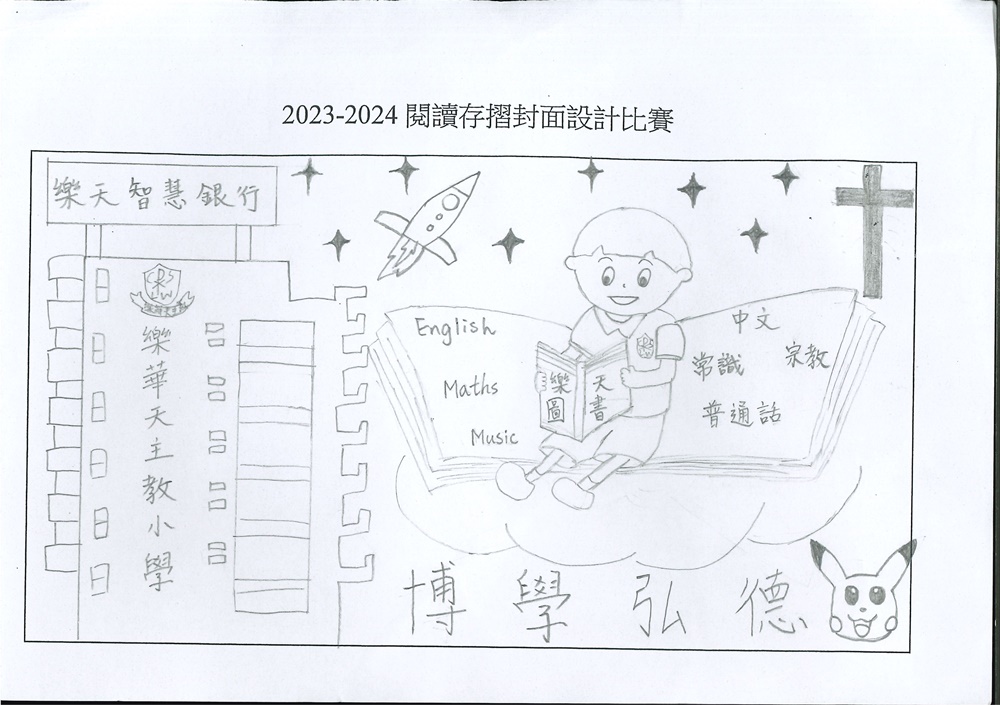 2023-2024 閱讀存摺封面設計比賽
樂天智慧銀行
CRS
LW
樂華天主教小學
English
Maths
Music
樂天
圖書
中文
常識
宗教
普通話
博學弘德